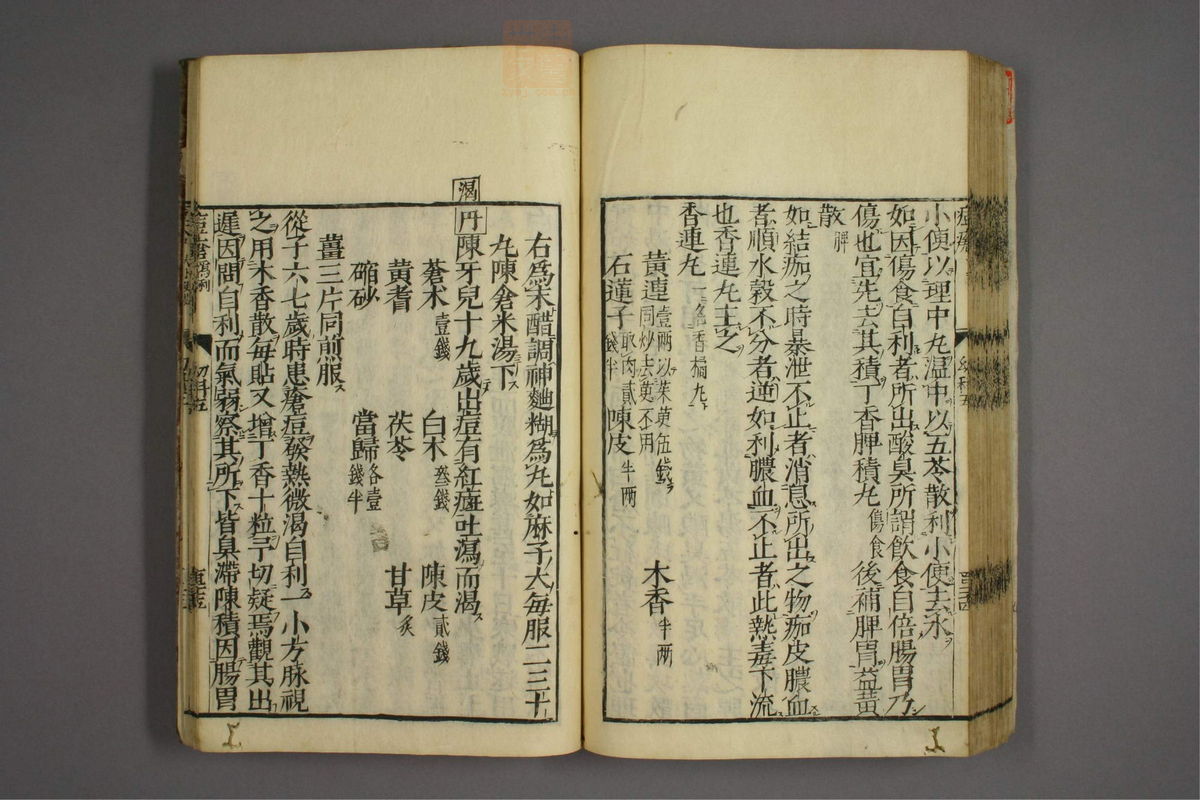 小便以理中丸温中以五苓散利小便去水
如因傷食自利者所出酸臭所謂飲食自倍腸胃乃
傷也宜先去其積丁香脾積丸傷食後補脾胃益黃
散脾
如結痂之時暴泄不止者消息所出之物痂皮膿血
者順水穀不分者逆如利膿血不止者此熱毒下流
也香連丸主之
香連丸一名香橘丸
黃連壹兩以茱萸伍錢同炒去萸不用 木香半兩
石蓮子取肉貳錢半 陳皮半兩
右為末醋調神麯糊為丸如麻子大每服二三十
丸陳倉米湯下
渴 丹陳牙兒十九歲出痘有紅瘢吐瀉而渴
蒼朮壹錢 白朮叁錢 陳皮貳錢
黃耆 茯苓 甘草炙
縮砂 當歸各壹錢半
薑三片同煎服
從子六七歲時患瘡痘發熱微渴自利一小方脉視
之用木香散每貼又增丁香十粒予切疑焉觀其出
遲因問自利而氣弱察其所下皆臭滯陳積因腸胃